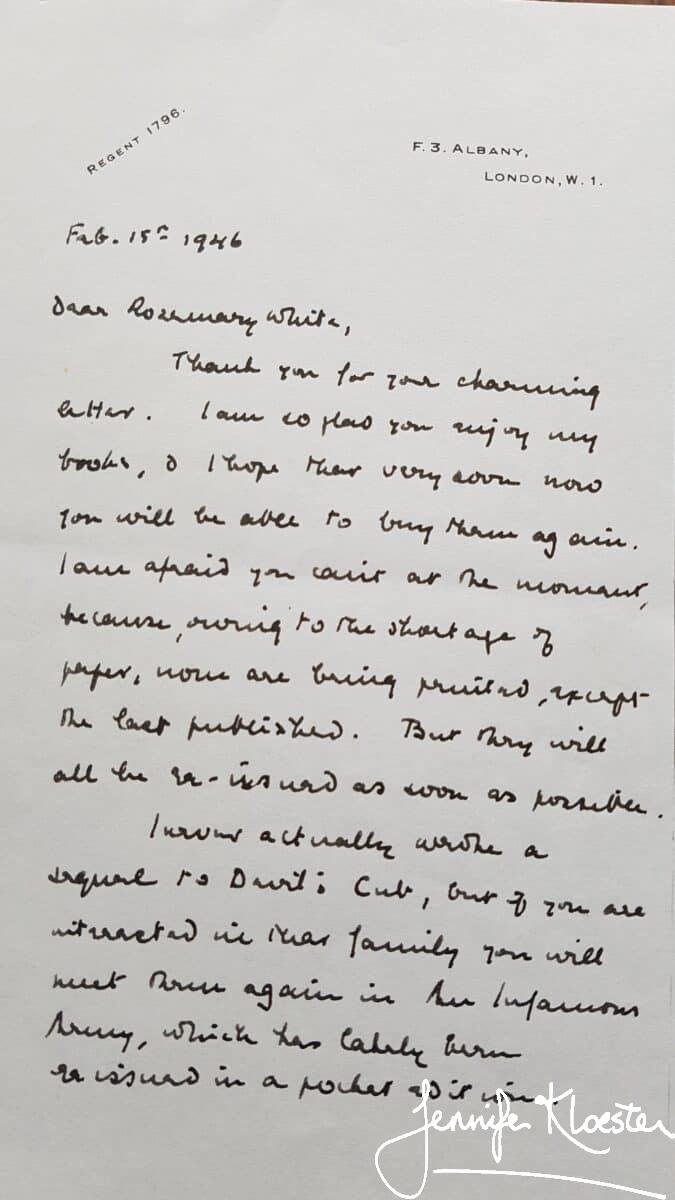 REGENT 1796.
F. 3. ALBANY,
LONDON, W. 1.
Feb. 15th 1946
Dear Rosemary White,
Thank you for your charming
letter. I am so glad you enjoy my
books, & I hope that very soon now
you will be able to buy them again.
I am afraid you can't at the moment,
because, owing to the shortage of
paper, none are being printed, except
the last published. But they will
all be re-issued as soon as possible.
I never actually wrote a
sequel to Devil's Cub, but if you are
interested in that family you will
meet them again in An Infamous
Army, which has lately been
re issued in a pocket edition.
Jennifer Kloester